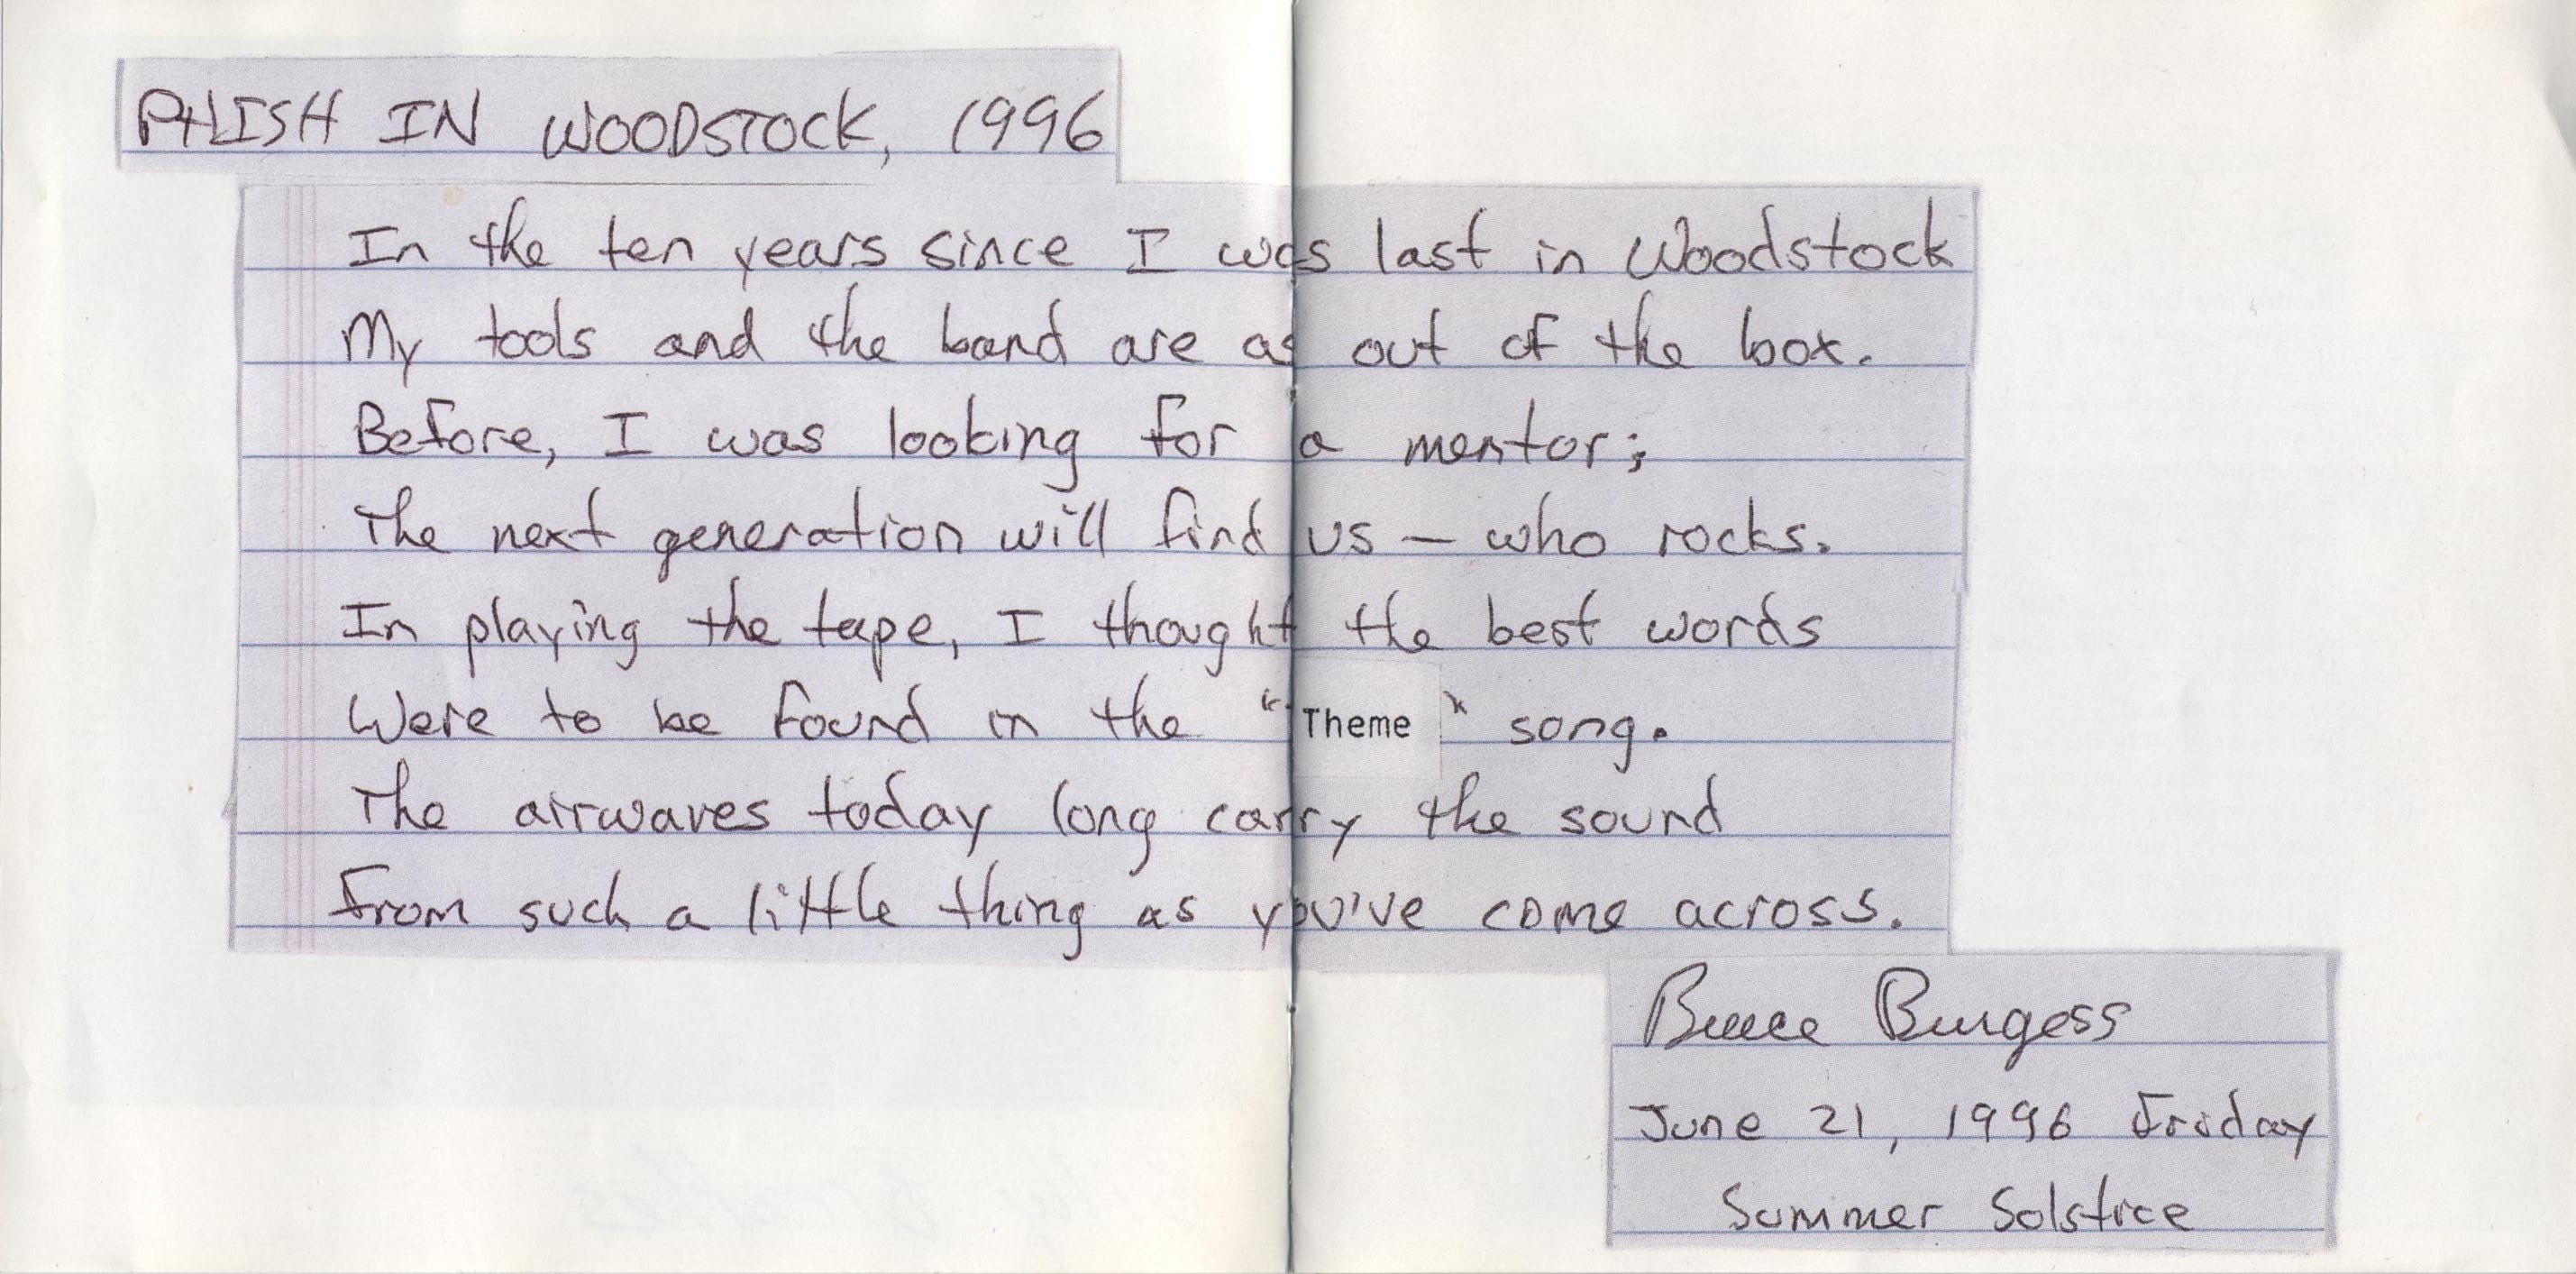 PHISH IN WOODSTOCK, 1996
In the ten years since I was last in Woodstock
My tools and the band are as out of the box.
Before, I was looking for a mentor;
The next generation will find us — who rocks.
In playing the tape, I thought the best words
Were to be found in the "Theme" song.
The airwaves today long carry the sound
From such a little thing as you've come across.
Bruce Burgess
June 21, 1996 Friday
Summer Solstice